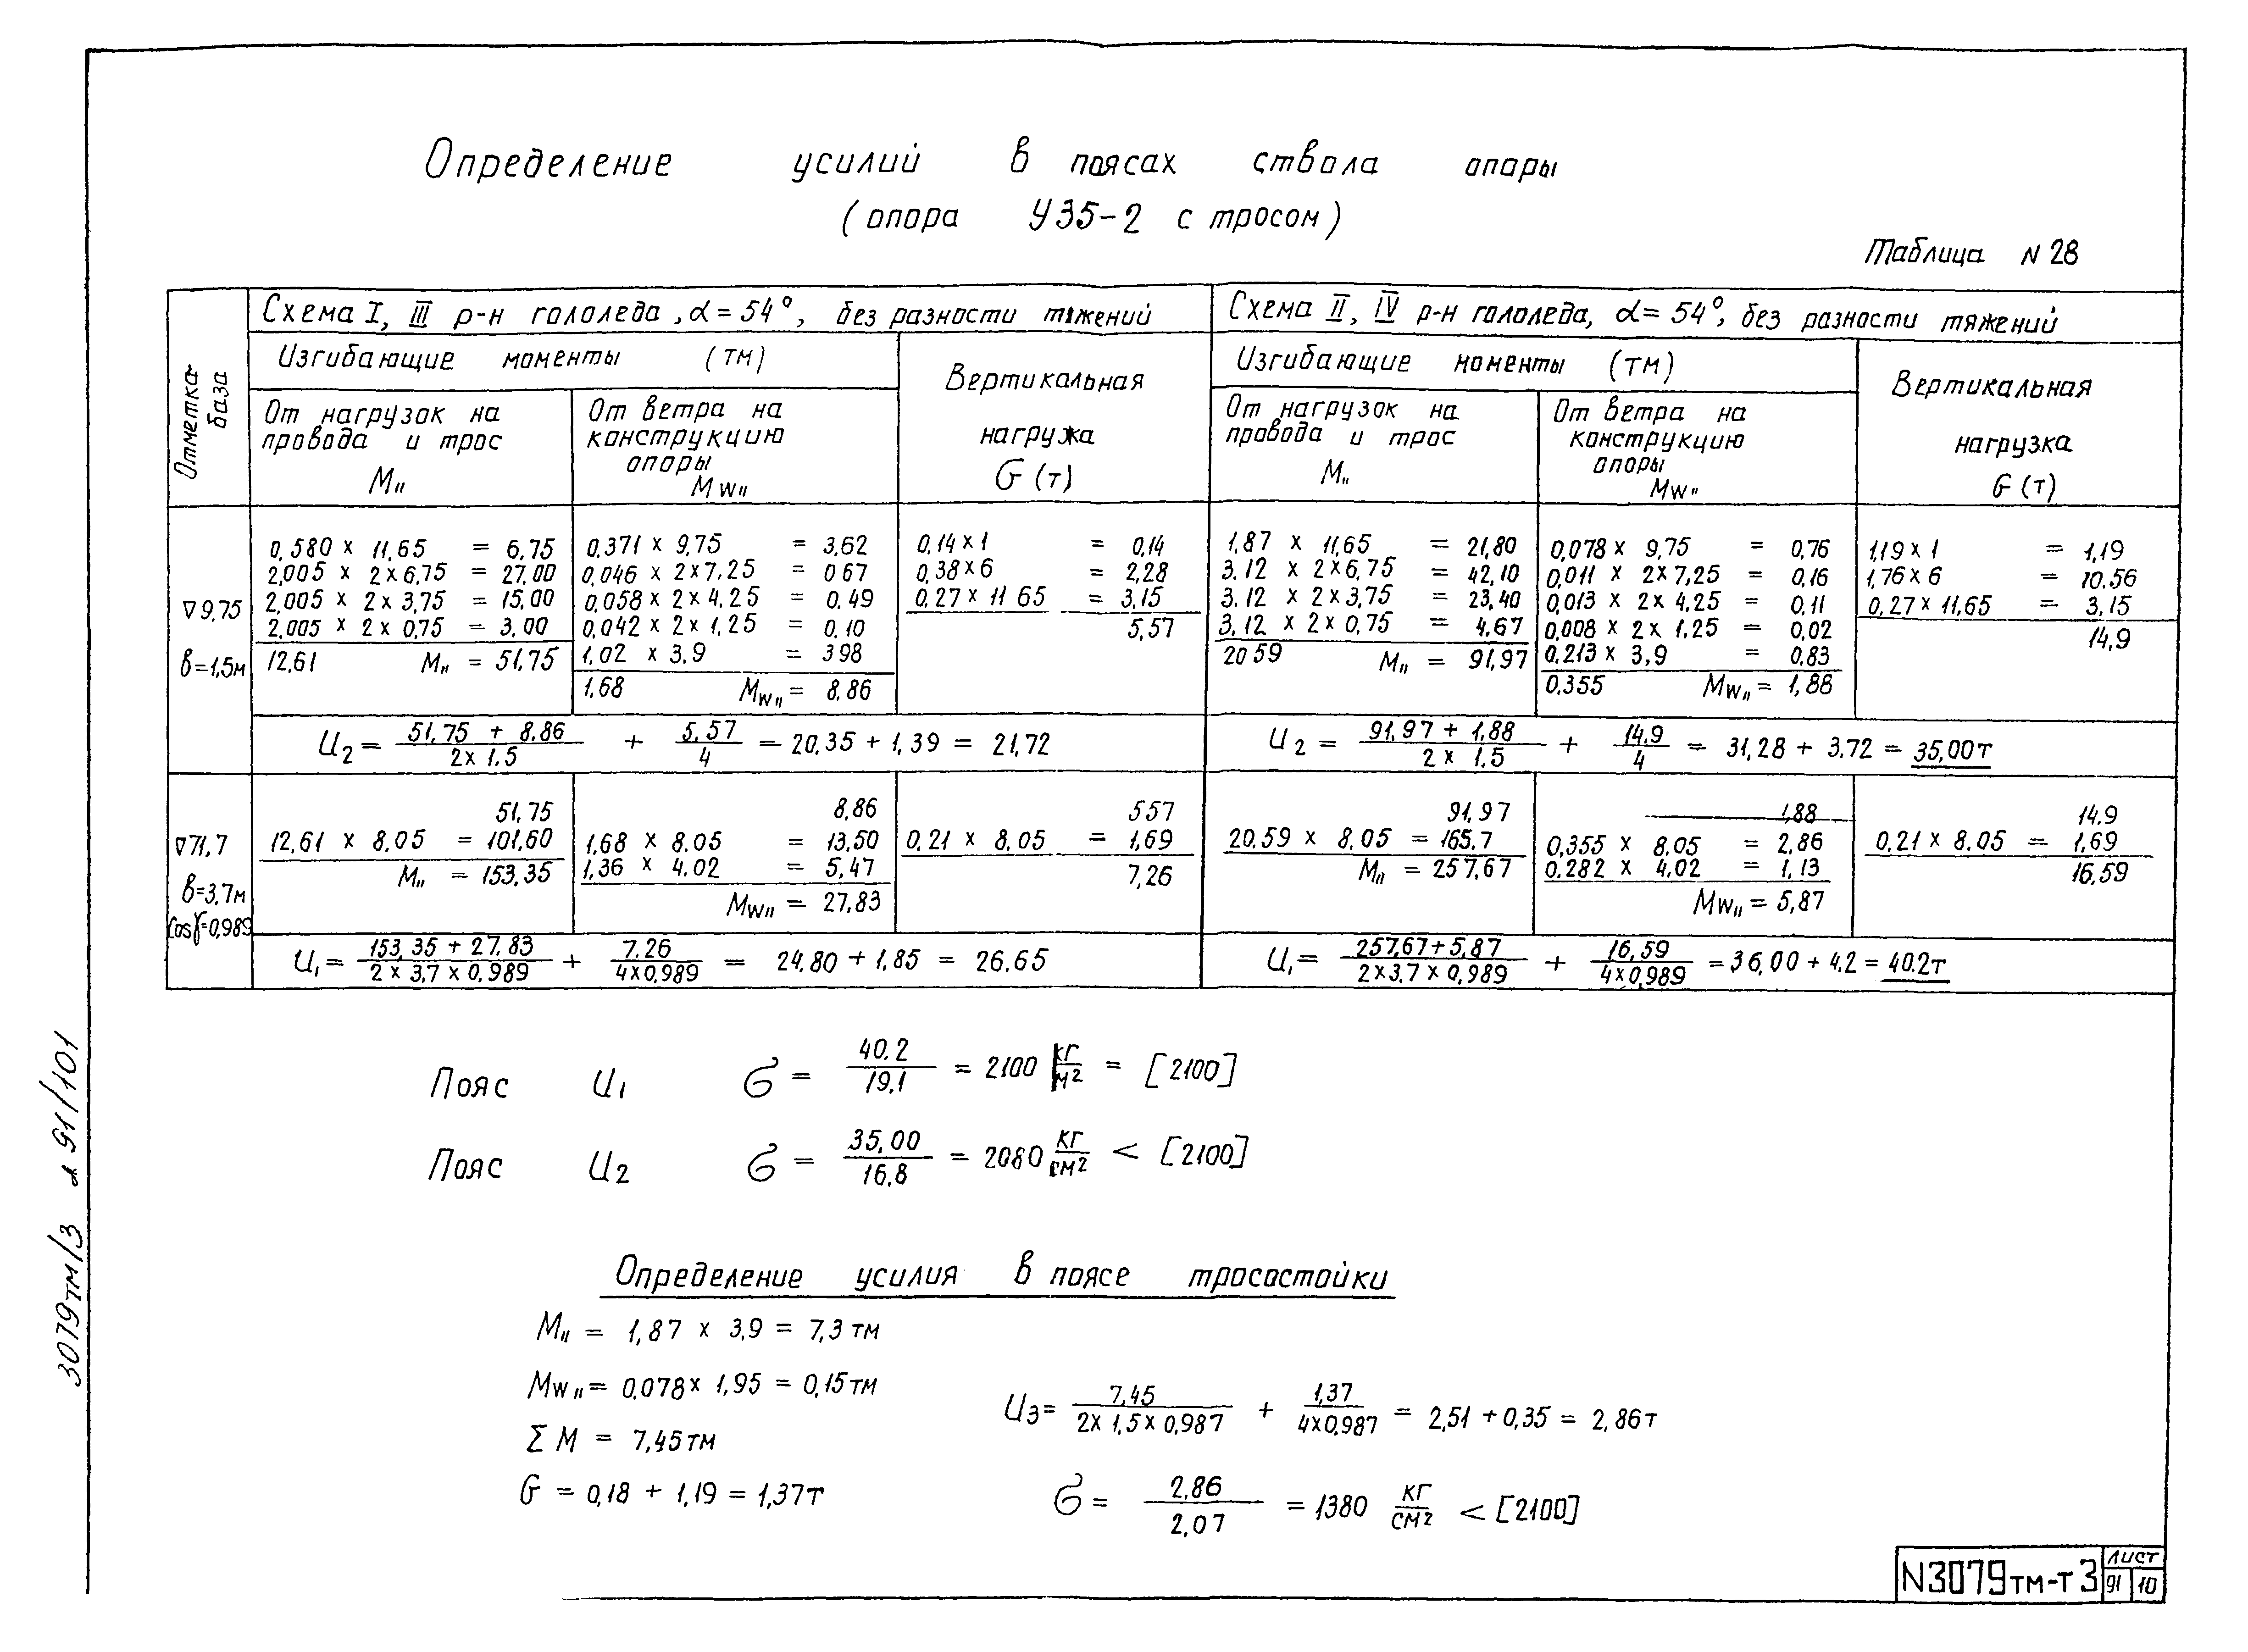 Определение усилий в поясах ствола опоры
(опора У35-2 с тросом)
Таблица N 28
Отметка база
Схема I, III р-н гололеда, α = 54°, без разности тяжений
Изгибающие моменты (тм)
От нагрузок на
провода и трос
M᎐ıı
От ветра на
конструкцию
опоры
Mwıı
Вертикальная
нагружа
G (т)
Схема II, IV р-н гололеда, α = 54°, без разности тяжений
Изгибающие моменты (тм)
От нагрузок на
провода и трос
Mıı
От ветра на
конструкцию
опоры
Mwıı
Вертикальная
нагрузка
G (т)
▽9,75
в=1,5м
0,580 x 11,65 = 6,75
2,005 x 2x6,75 = 27,00
2,005 x 2x3,75 = 15,00
2,005 x 2x0,75 = 3,00
12,61 Mıı = 51,75
0,371 x 9,75 = 3,62
0,046 x 2x7,25 = 0 67
0,058 x 2x4,25 = 0.49
0,042 x 2x1,25 = 0.10
1,02 x 3,9 = 3 98
1,68 Mwıı = 8.86
0,14 x 1 = 0,14
0,38 x 6 = 2,28
0,27 x 11 65 = 3,15
5,57
1,87 x 11,65 = 21,80
3.12 x 2x6,75 = 42,10
3.12 x 2x3,75 = 23,40
3,12 x 2x0,75 = 4,67
20 59 Mıı = 91,97
0,078 x 9,75 = 0,76
0,011 x 2x7,25 = 0,16
0,013 x 2x4,25 = 0,11
0,008 x 2x1,25 = 0,02
0,213 x 3,9 = 0,83
0,355 Mwıı = 1,88
1,19 x 1 = 1,19
1,76 x 6 = 10.56
0,27 x 11,65 = 3,15
14,9
U2 = 51,75 + 8,86 / 2x1.5 + 5,57 / 4 = 20,35 + 1,39 = 21,72
U2 = 91,97 + 1,88 / 2 x 1.5 + 14.9 / 4 = 31,28 + 3.72 = 35,00т
▽71,7
в=3,7м
cosγ=0,989
51,75
12,61 x 8,05 = 101,60
Mıı = 153,35
8,86
1,68 x 8.05 = 13,50
1,36 x 4.02 = 5,47
Mwıı = 27,83
5 57
0,21 x 8,05 = 1,69
7,26
91,97
20,59 x 8,05 = 165.7
Mıı = 257,67
1,88
0,355 x 8,05 = 2,86
0.282 x 4,02 = 1,13
Mwıı = 5,87
14.9
0,21 x 8.05 = 1,69
16,59
U1 = 153,35 + 27,83 / 2 x 3,7 x 0,989 + 7.26 / 4x0,989 = 24,80 + 1,85 = 26.65
U1 = 257,67+5,87 / 2x3,7 x 0,989 + 16,59 / 4x0,989 = 36,00 + 4.2 = 40.2т
Пояс U1 σ = 40.2 / 19,1 = 2100 кг/м2 = [2100]
Пояс U2 σ = 35,00 / 16,8 = 2080 кг/см2 < [2100]
Определение усилия в поясе тросостойки
Mıı = 1,87 x 3,9 = 7,3 тм
Mwıı = 0,078 x 1,95 = 0,15тм
ΣM = 7,45тм
G = 0,18 + 1,19 = 1,37т
U3 = 7,45 / 2x1,5x0,987 + 1,37 / 4x0,987 = 2,51 + 0,35 = 2,86т
σ = 2,86 / 2,07 = 1380 кг/см2 < [2100]
3079тм/3 л 91/101
N3079тм-т3
Лист
91 10